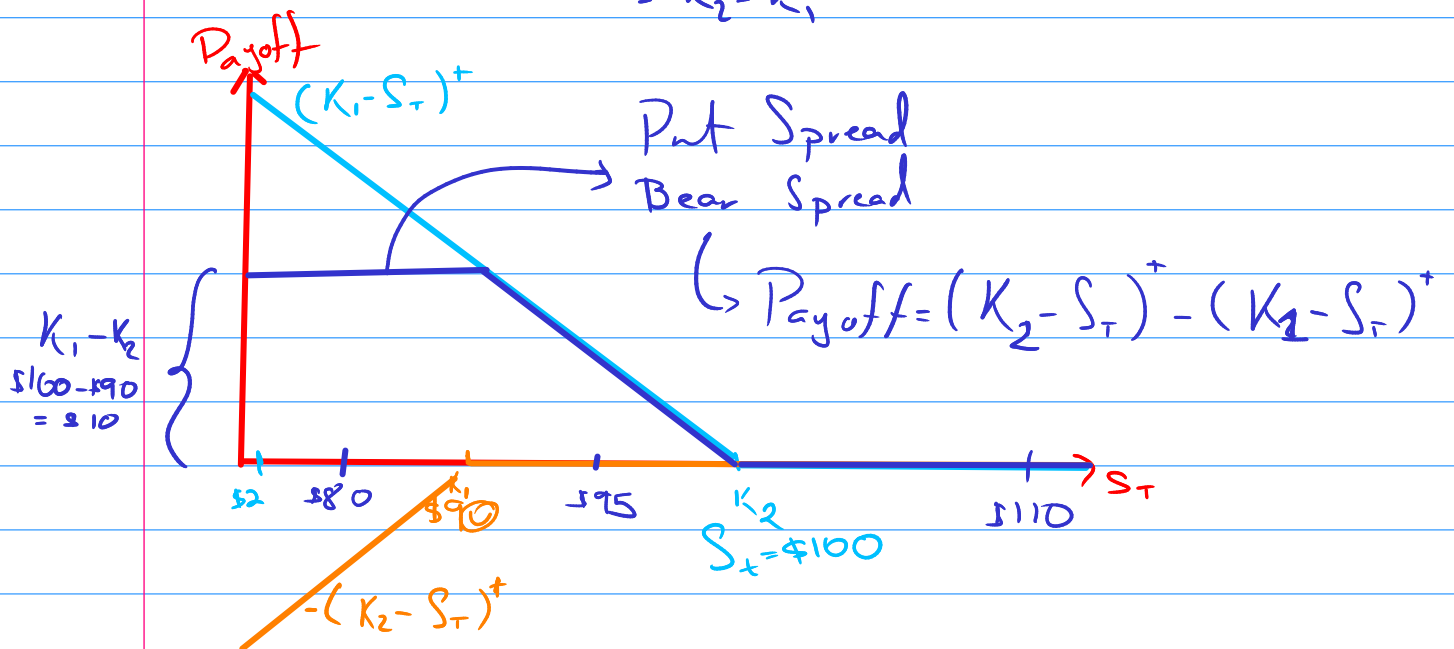 = K₂ - K₁
Payoff
(K₁-S_T)⁺
Put Spread
Bear Spread
Payoff = (K₂-S_T)⁺ - (K₁-S_T)⁺
K₁-K₂
$100-$90
= $10
$2 $80 K₁ $95 K₂ $110 S_T
$90
S_t=$100
-(K₂-S_T)⁺